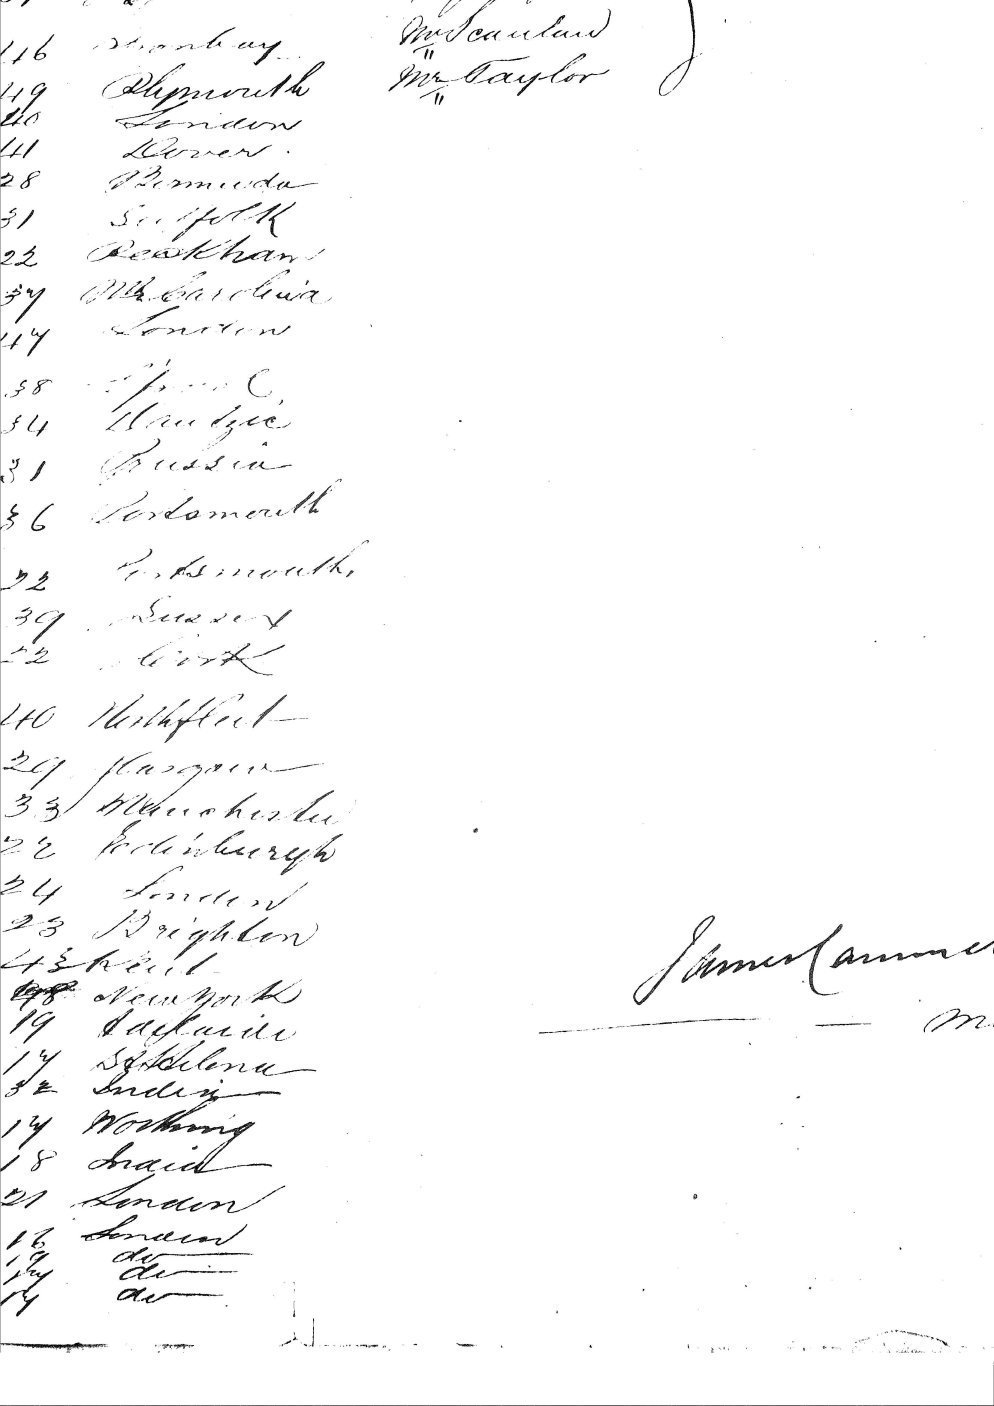 46 Bombay Mr Scanlan
49 Plymouth Mr Taylor
40 London
41 Dover
28 Bermuda
31 Suffolk
22 Peckham
37 Nth Carolina
47 London
38
34 Dantzic
31 Prussia
36 Portsmouth
22 Portsmouth
39 Sussex
22 Cork
40 Northfleet
29 Glasgow
33 Manchester
22 Edinburgh
24 London
23 Brighton
43 Kent
New York James
19 Adelaide
17 St Helena
32 India
17 Worthing
18 India
21 London
16 London
19 do
17 do
17 do